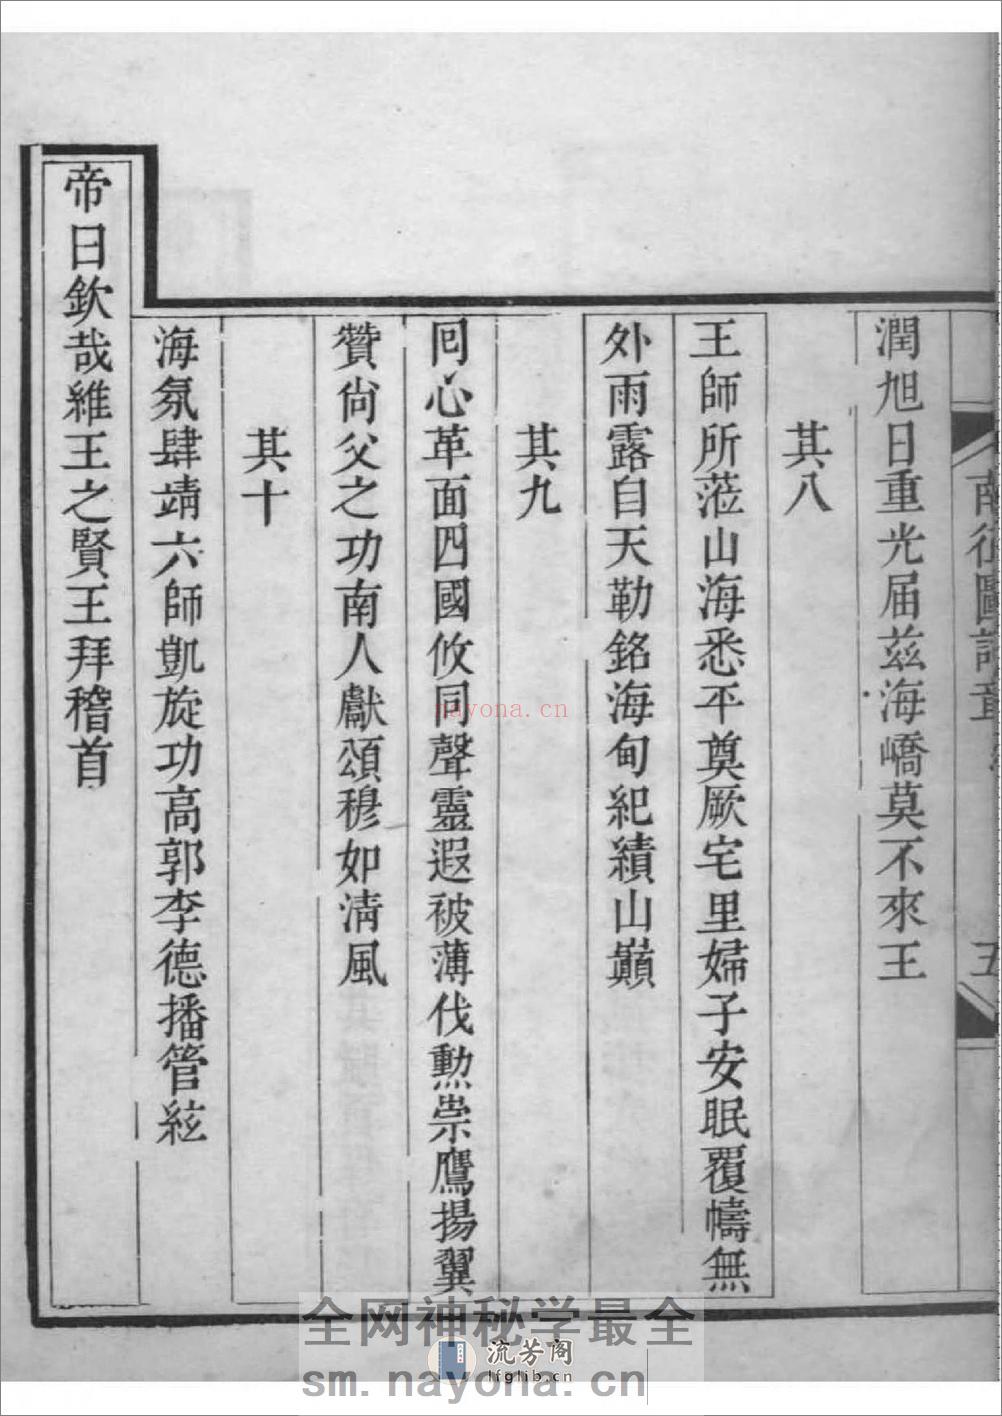 潤旭日重光届茲海嶠莫不來王
其八
王師所蒞山海悉平奠厥宅里婦子安眠覆幬無
外雨露自天勒銘海甸紀績山巔
其九
囘心革面四國攸同聲靈遐被薄伐勲崇鷹揚翼
贊尙父之功南人獻頌穆如淸風
其十
海氛肆靖六師凱旋功高郭李德播管絃
帝日欽哉維王之賢王拜稽首
五
nayona.cn
全网神秘学最全
流芳阁
lfglib.cn
sm.nayona.cn